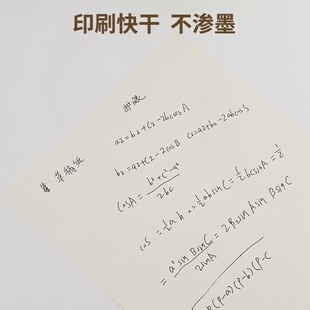 印刷快干 不渗墨
护眼
a2=b2+c2-2bcosA
b2=a2+c2-2cosB c2=a2+b2-2abcosS
草稿纸
cosA=b²+c²-a²/2bc
cos=½ah=½absinC=½bcsinA=½
=a²sin BsinC/2sinA=2R2sin Asin BsinC
P(P-a)(P-b)(P-C